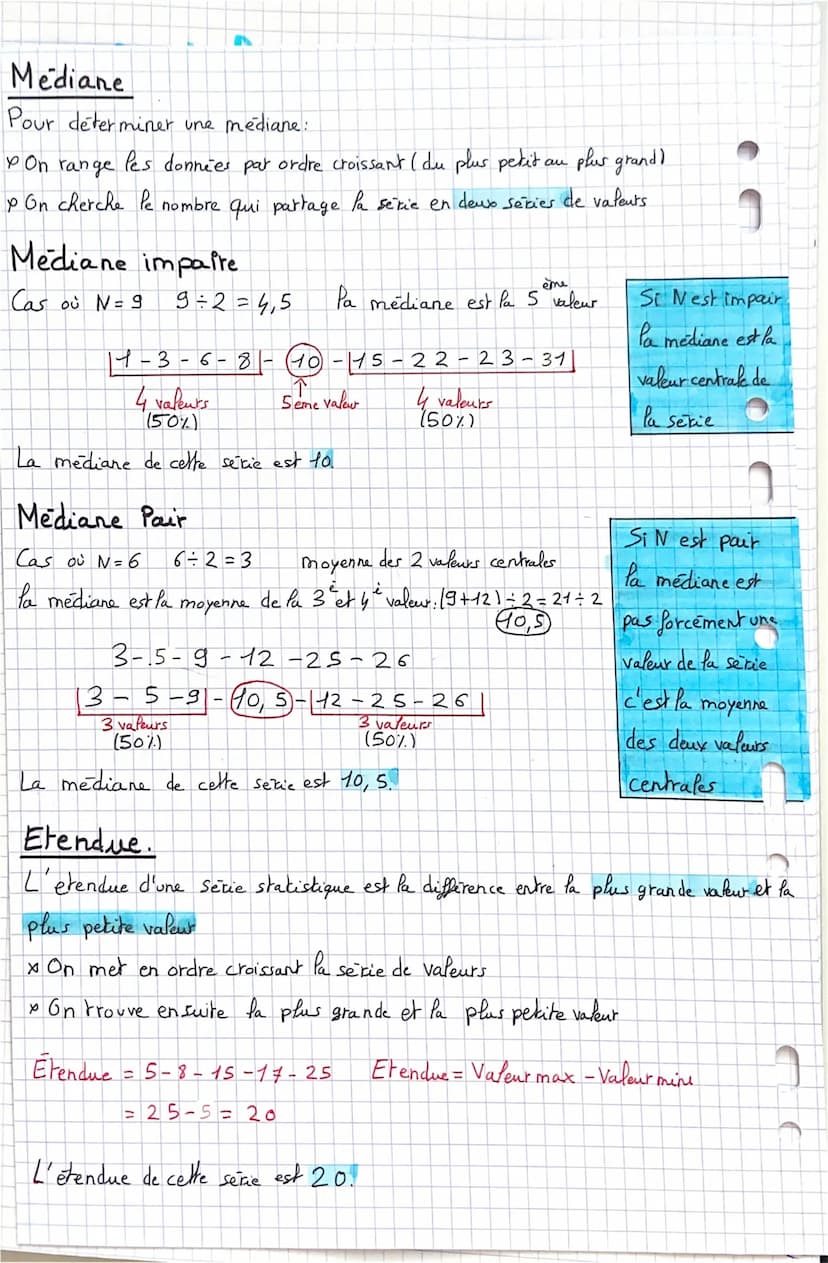 Médiane
Pour déterminer une médiane:
On range les données par ordre croissant (du plus petit au plus grand)
On cherche le nombre qui partage la série en deux séries de valeurs
Médiane impaire
Cas où N=9 9÷2=4,5 la médiane est la 5ème valeur
|1-3-6-8|-10-|15-22-23-31|
4 valeurs 5ème valeur 4 valeurs
(50%) (50%)
La médiane de cette série est 10.
Si N est impair
la médiane est la
valeur centrale de
la série
Médiane Pair
Cas où N=6 6÷2=3 moyenne des 2 valeurs centrales
la médiane est la moyenne de la 3è et 4è valeur:(9+12)÷2=21÷2
10,5
3-.5-9-12-25-26
|3-5-9|-10,5-|12-25-26|
3 valeurs 3 valeurs
(50%) (50%)
La médiane de cette série est 10,5.
Si N est pair
la médiane est
pas forcément une
valeur de la série
c'est la moyenne
des deux valeurs
centrales
Etendue.
L'étendue d'une série statistique est la différence entre la plus grande valeur et la
plus petite valeur
On met en ordre croissant la série de valeurs
On trouve ensuite la plus grande et la plus petite valeur
Étendue = 5-8-15-17-25 Etendue = Valeur max - Valeur mini
= 25-5 = 20
L'étendue de cette série est 20.